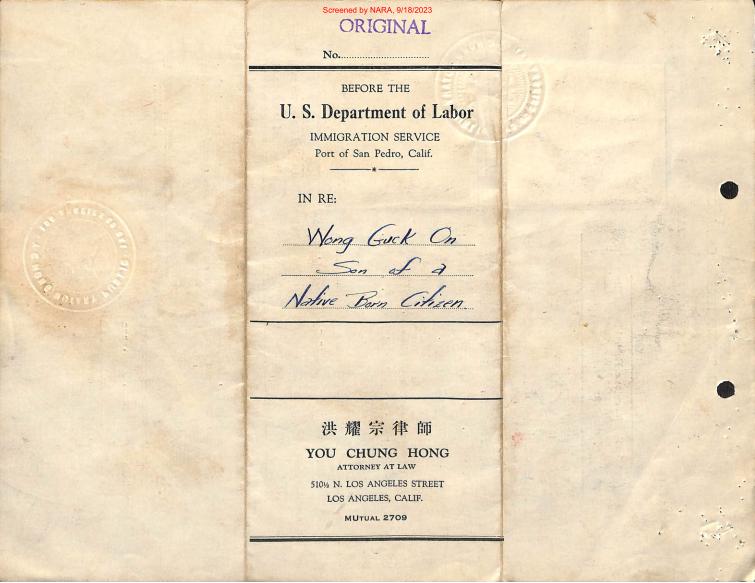 Screened by NARA, 9/18/2023
ORIGINAL
No.
BEFORE THE
U. S. Department of Labor
IMMIGRATION SERVICE
Port of San Pedro, Calif.
IN RE:
Wong Guck On
Son of a
Native Born Citizen
洪耀宗律師
YOU CHUNG HONG
ATTORNEY AT LAW
510½ N. LOS ANGELES STREET
LOS ANGELES, CALIF.
MUTUAL 2709